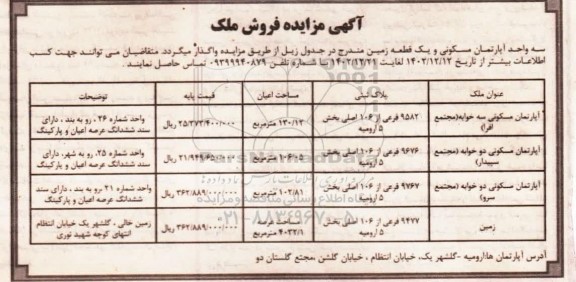 آگهی مزایده فروش ملک
سه واحد آپارتمان مسکونی و یک قطعه زمین مندرج در جدول زیل از طریق مزایده واگذار میگردد. متقاضیان می توانند جهت کسب
اطلاعات بیشتر از تاریخ ۱۴۰۲/۱۲/۱۲ لغایت ۱۴۰۲/۱۲/۲۱ با شماره تلفن ۰۹۳۹۹۹۴۰۸۷۹ تماس حاصل نمایند.
عنوان ملک پلاک ثبتی مساحت اعیان قیمت پایه توضیحات
آپارتمان مسکونی سه خوابه(مجتمع افرا) ۹۵۸۲ فرعی از ۱۰۶ اصلی بخش ۵ ارومیه ۱۳۰/۱۳ مترمربع ریال واحد شماره ۲۶ ، رو به بند ، دارای سند ششدانگ عرصه اعیان و پارکینگ
آپارتمان مسکونی دو خوابه (مجتمع سپیدار) ۹۶۷۶ فرعی از ۱۰۶ اصلی بخش ۵ ارومیه مترمربع ریال واحد شماره ۲۵، رو به شهر، دارای سند ششدانگ عرصه اعیان و پارکینگ
آپارتمان مسکونی دو خوابه (مجتمع سرو) ۹۷۶۷ فرعی از ۱۰۶ اصلی بخش ۵ ارومیه ۱۰۲/۸۱ مترمربع ریال واحد شماره ۲۱ رو به بند ، دارای سند ششدانگ عرصه اعیان و پارکینگ
زمین ۹۴۷۷ فرعی از ۱۰۶ اصلی بخش ۵ ارومیه مساحت عرصه ۴۰۳۲/۱ مترمربع ریال زمین خالی ، گلشهر یک خیابان انتظام انتهای کوچه شهید نوری
آدرس آپارتمان ها:ارومیه -گلشهر یک، خیابان انتظام ، خیابان گلشن ،مجتمع گلستان دو